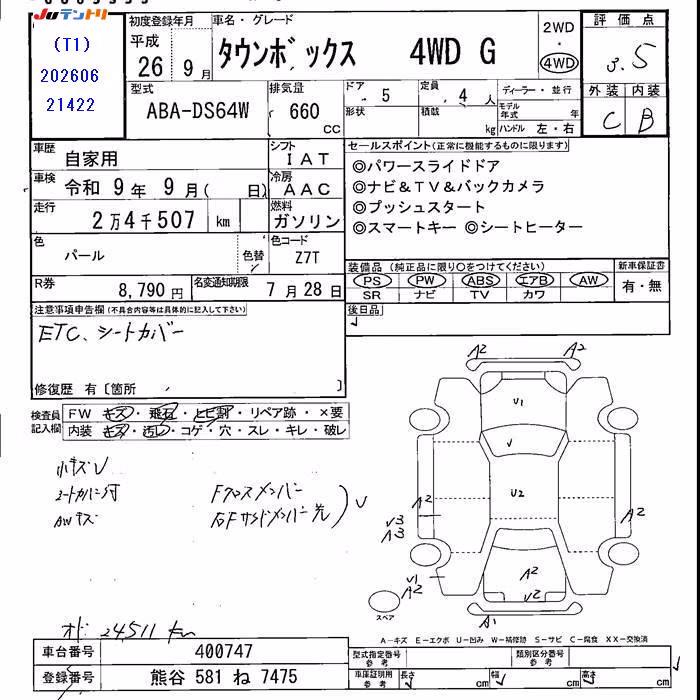 JUテントリ
(T1)
202606
21422
初度登録年月
平成
26 9月
車名・グレード
タウンボックス 4WD G
2WD
・
4WD
評価点
3.5
外装 内装
C B
型式
ABA-DS64W
排気量
660
cc
ドア
5
定員
4人
形状
積載
kg
ディーラー・並行
モデル年式 年
ハンドル 左・右
車歴
自家用
シフト
IAT
車検
令和 9年 9月( 日)
冷房
AAC
走行
2万4千507 km
燃料
ガソリン
色
パール
色替
色コード
Z7T
R券
8,790円
名変通知期限
7月28日
セールスポイント(正常に機能するものに限ります)
◎パワースライドドア
◎ナビ&TV&バックカメラ
◎プッシュスタート
◎スマートキー ◎シートヒーター
装備品(純正品に限り○をつけてください)
PS PW ABS エアB AW
SR ナビ TV カワ
新車保証書
有・無
後日品
注意事項申告欄(不具合内容等は具体的に記入して下さい)
ETC、シートカバー
修復歴 有〔箇所 〕
検査員記入欄
FW キズ・飛石・ヒビ割・リペア跡・×要
内装 キズ・汚レ・コゲ・穴・スレ・キレ・破レ
小キズV
シートカバー付
AWキズ
Fクロスメンバー
右Fサイドメンバー先
V
A2 A2
V1
V
U2
A2
V3
A3
A2
V1
A2
A2
V2
A1
スペア
オド 24511 km
A-キズ E-エクボ U-凹み W-補修跡 S-サビ C-腐食 XX-交換済
車台番号
400747
登録番号
熊谷 581 ね 7475
型式指定番号
参考
類別区分番号
参考
車庫証明用
参考
長さ
cm
幅
cm
高さ
cm